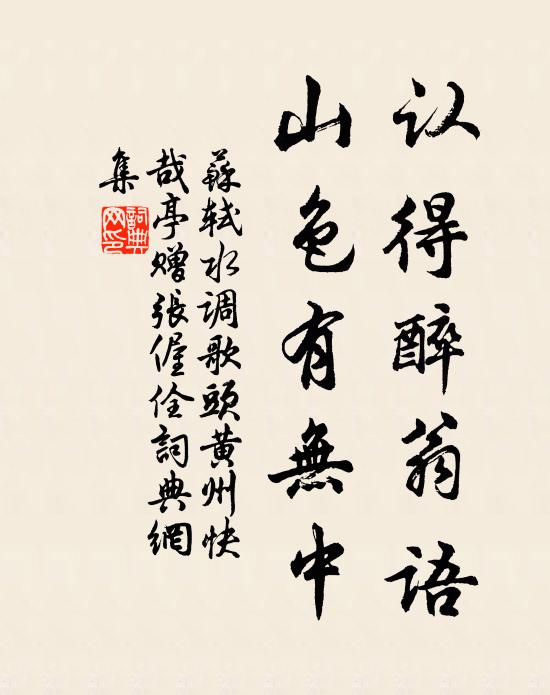 认得醉翁語
山色有無中
蘇轼水调歌頭黄州快
哉亭赠張偓佺詞典網
集
詞典
网印